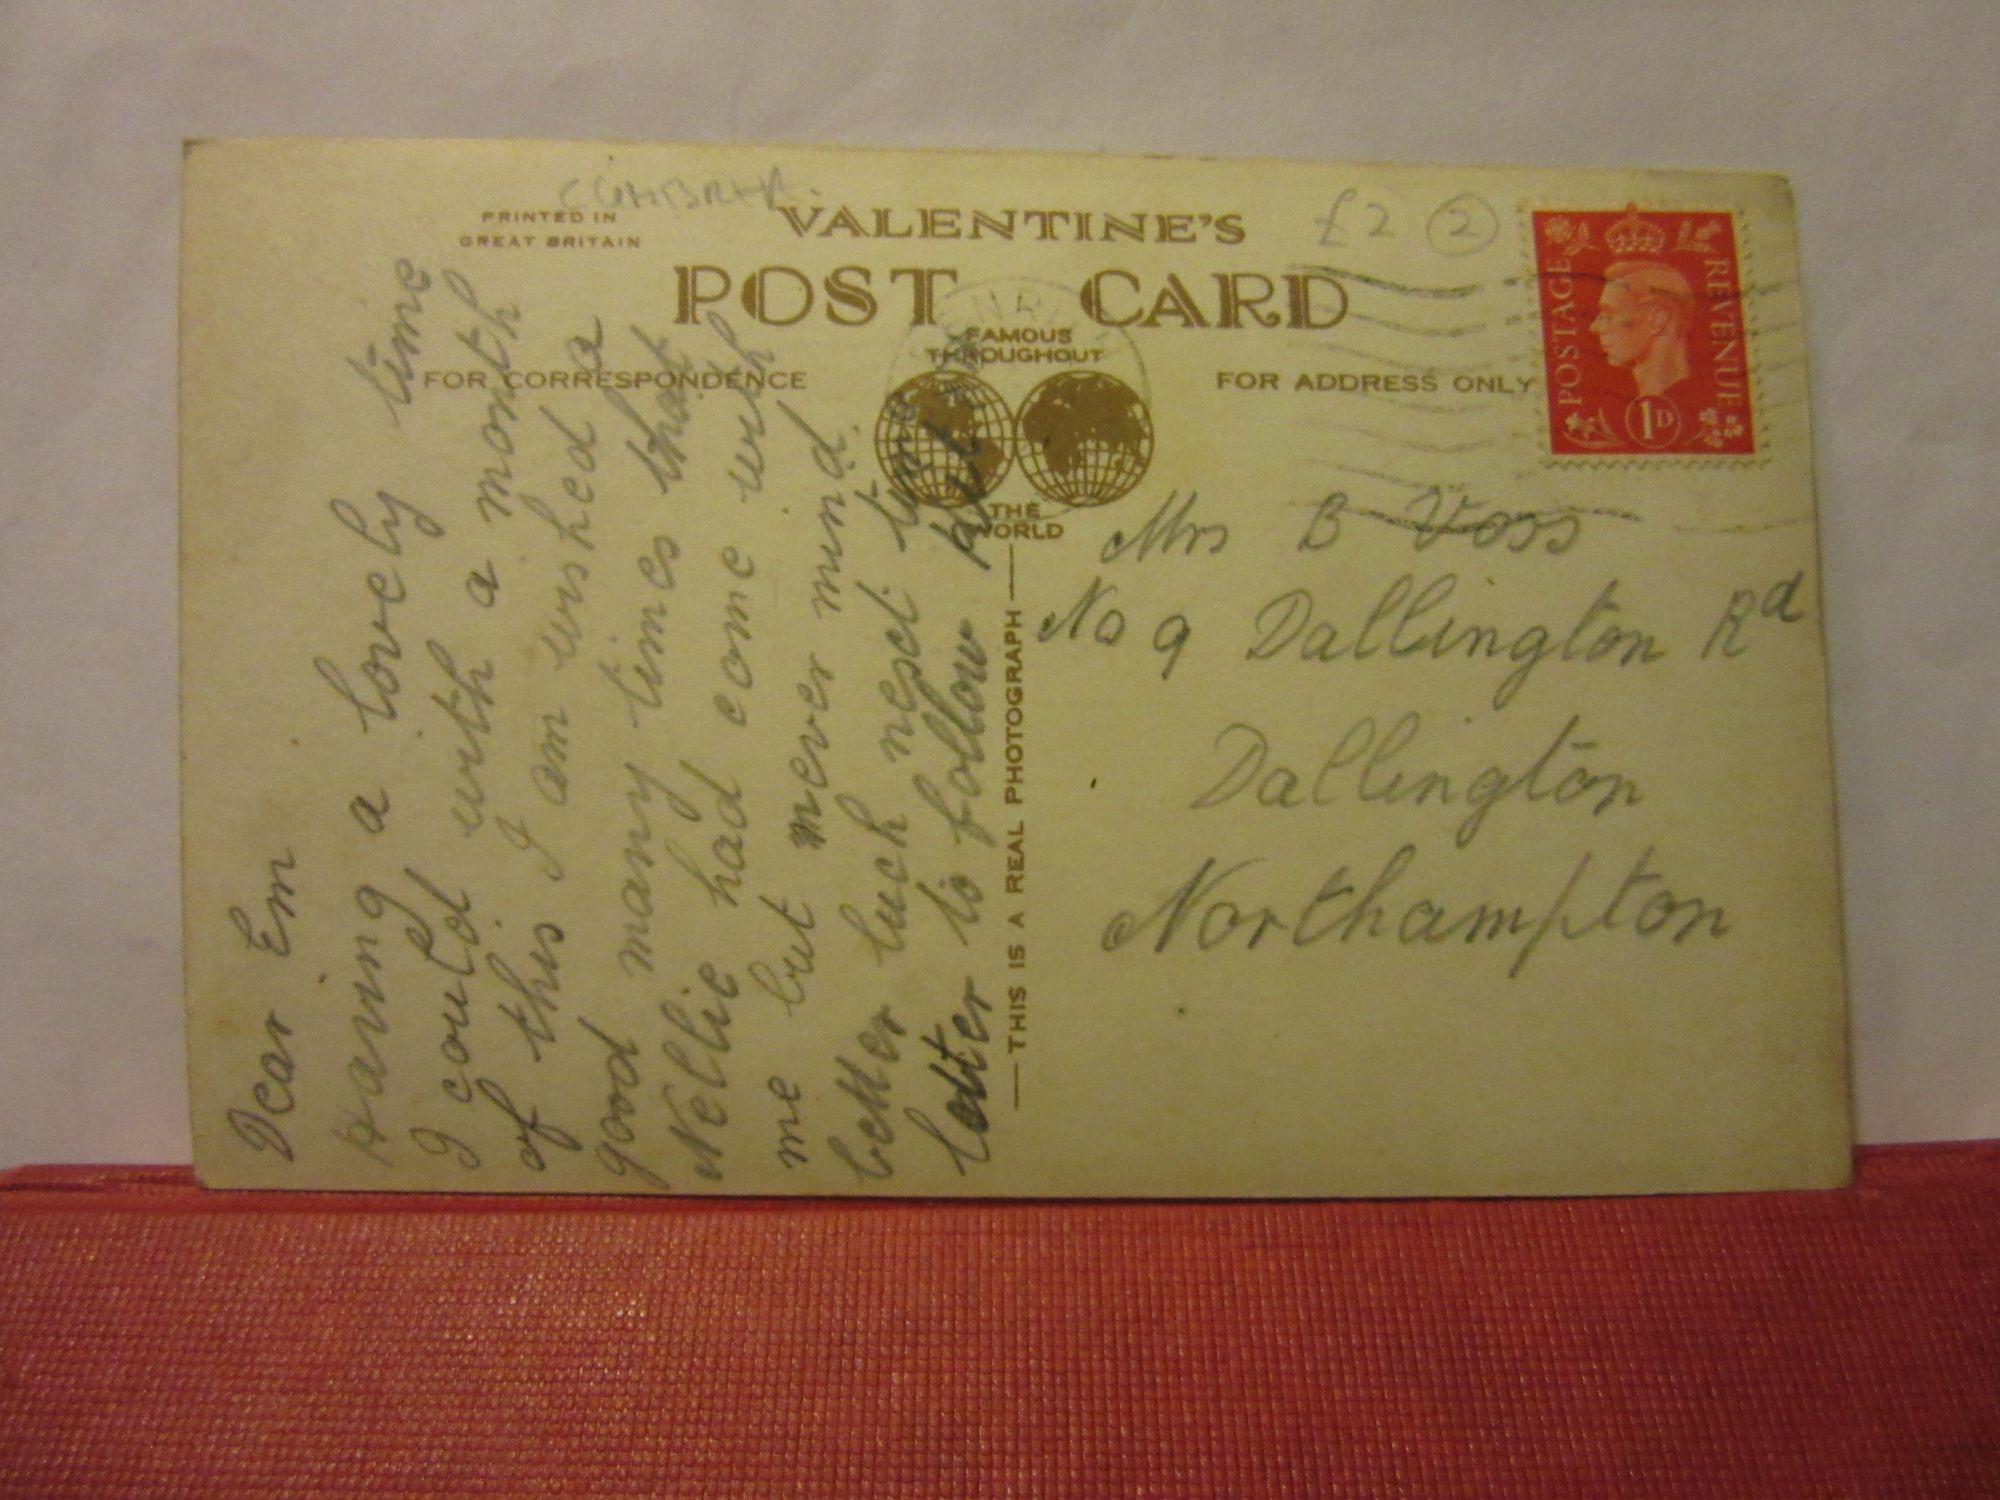 PRINTED IN
GREAT BRITAIN
VALENTINE'S
POST CARD
FAMOUS
THROUGHOUT
THE
WORLD
FOR CORRESPONDENCE
FOR ADDRESS ONLY
£2 2
POSTAGE REVENUE
1D
THIS IS A REAL PHOTOGRAPH
Dear Em
Having a lovely time
I could with a month
of this I am wished a
good many times that
Nellie had come with
me but never mind
better luck next time
letter to follow
Mrs B Voss
No 9 Dallington Rd
Dallington
Northampton